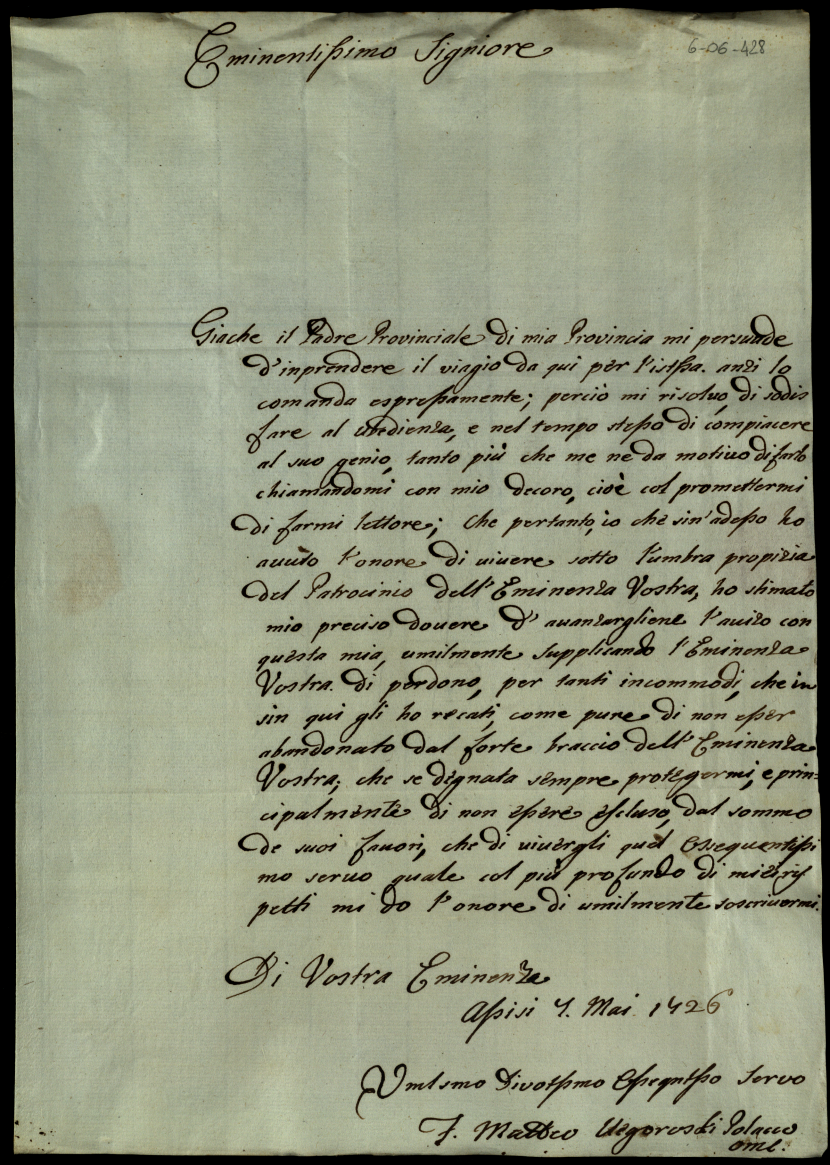 Eminentissimo Signiore
6-06-428
Giache il Padre Provinciale di mia Provincia mi persuade
d'inprendere il viagio da qui per l'istssa. anzi lo
comanda espressamente; perciò mi risoluo, di sodis
fare al ubedienza, e nel tempo stesso di compiacere
al suo genio, tanto più che me ne da motiuo di farlo
chiamandomi con mio decoro, cioè col promettermi
di farmi lettore; Che pertanto, io che sin'adesso ho
auuto l'onore di uiuere sotto l'umbra propizia
del Patrocinio dell'Eminenza Vostra, ho stimato
mio preciso douere d'auanzargliene l'auizo con
questa mia, umilmente supplicando l'Eminenza
Vostra. di perdono, per tanti incommodi, che in
sin qui gli ho recati, come pure di non esser
abandonato dal forte braccio dell'Eminenza
Vostra; che se degnata sempre protegermi, e prin=
cipalmente di non essere escluso, dal sommo
de suoi fauori, che di uiuergli quel Ossequentissi
mo seruo quale col più profundo di miei ris
petti mi do l'onore di umilmente soscriuermi.
Di Vostra Eminenza
Assisi 7. Mai 1726
Vmlsmo Divotsmo Ossequtsso Servo
F. Matteo Polacco
omc.